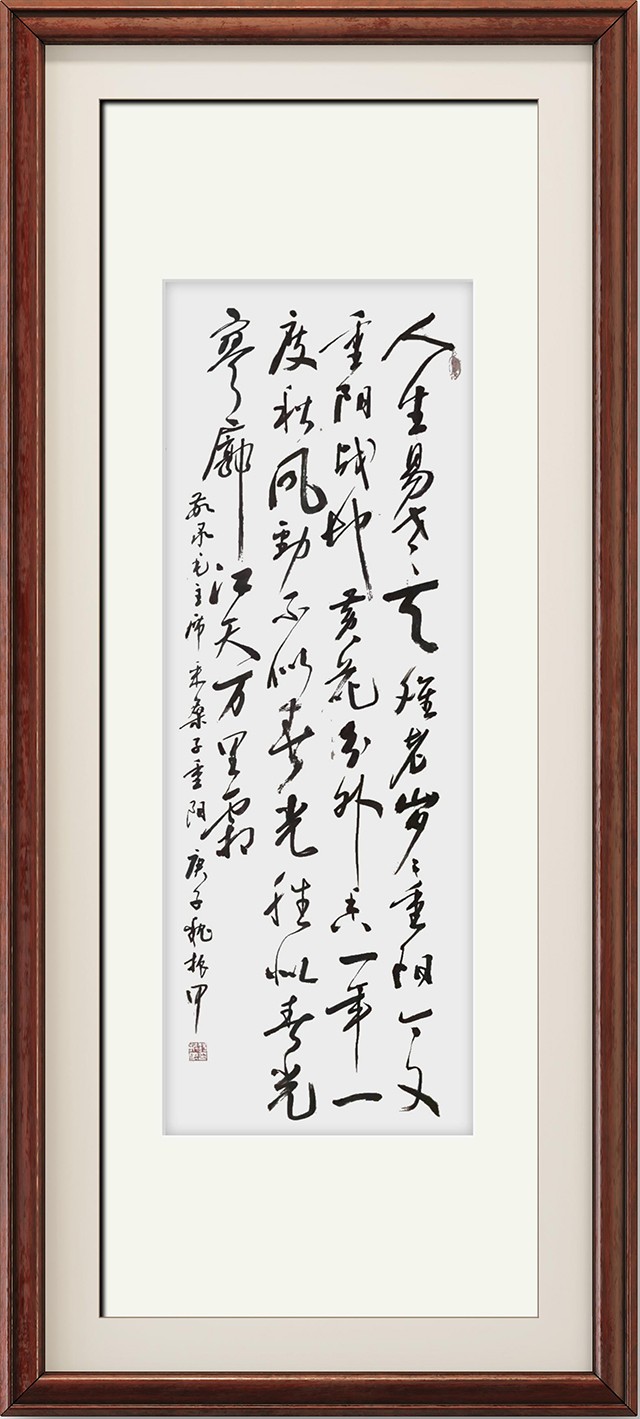 人生易老天难老岁々重阳今又
重阳战地黄花分外香一年一
度秋风劲不似春光胜似春光
寥廓江天万里霜
敬录毛主席采桑子重阳 庚子振甲